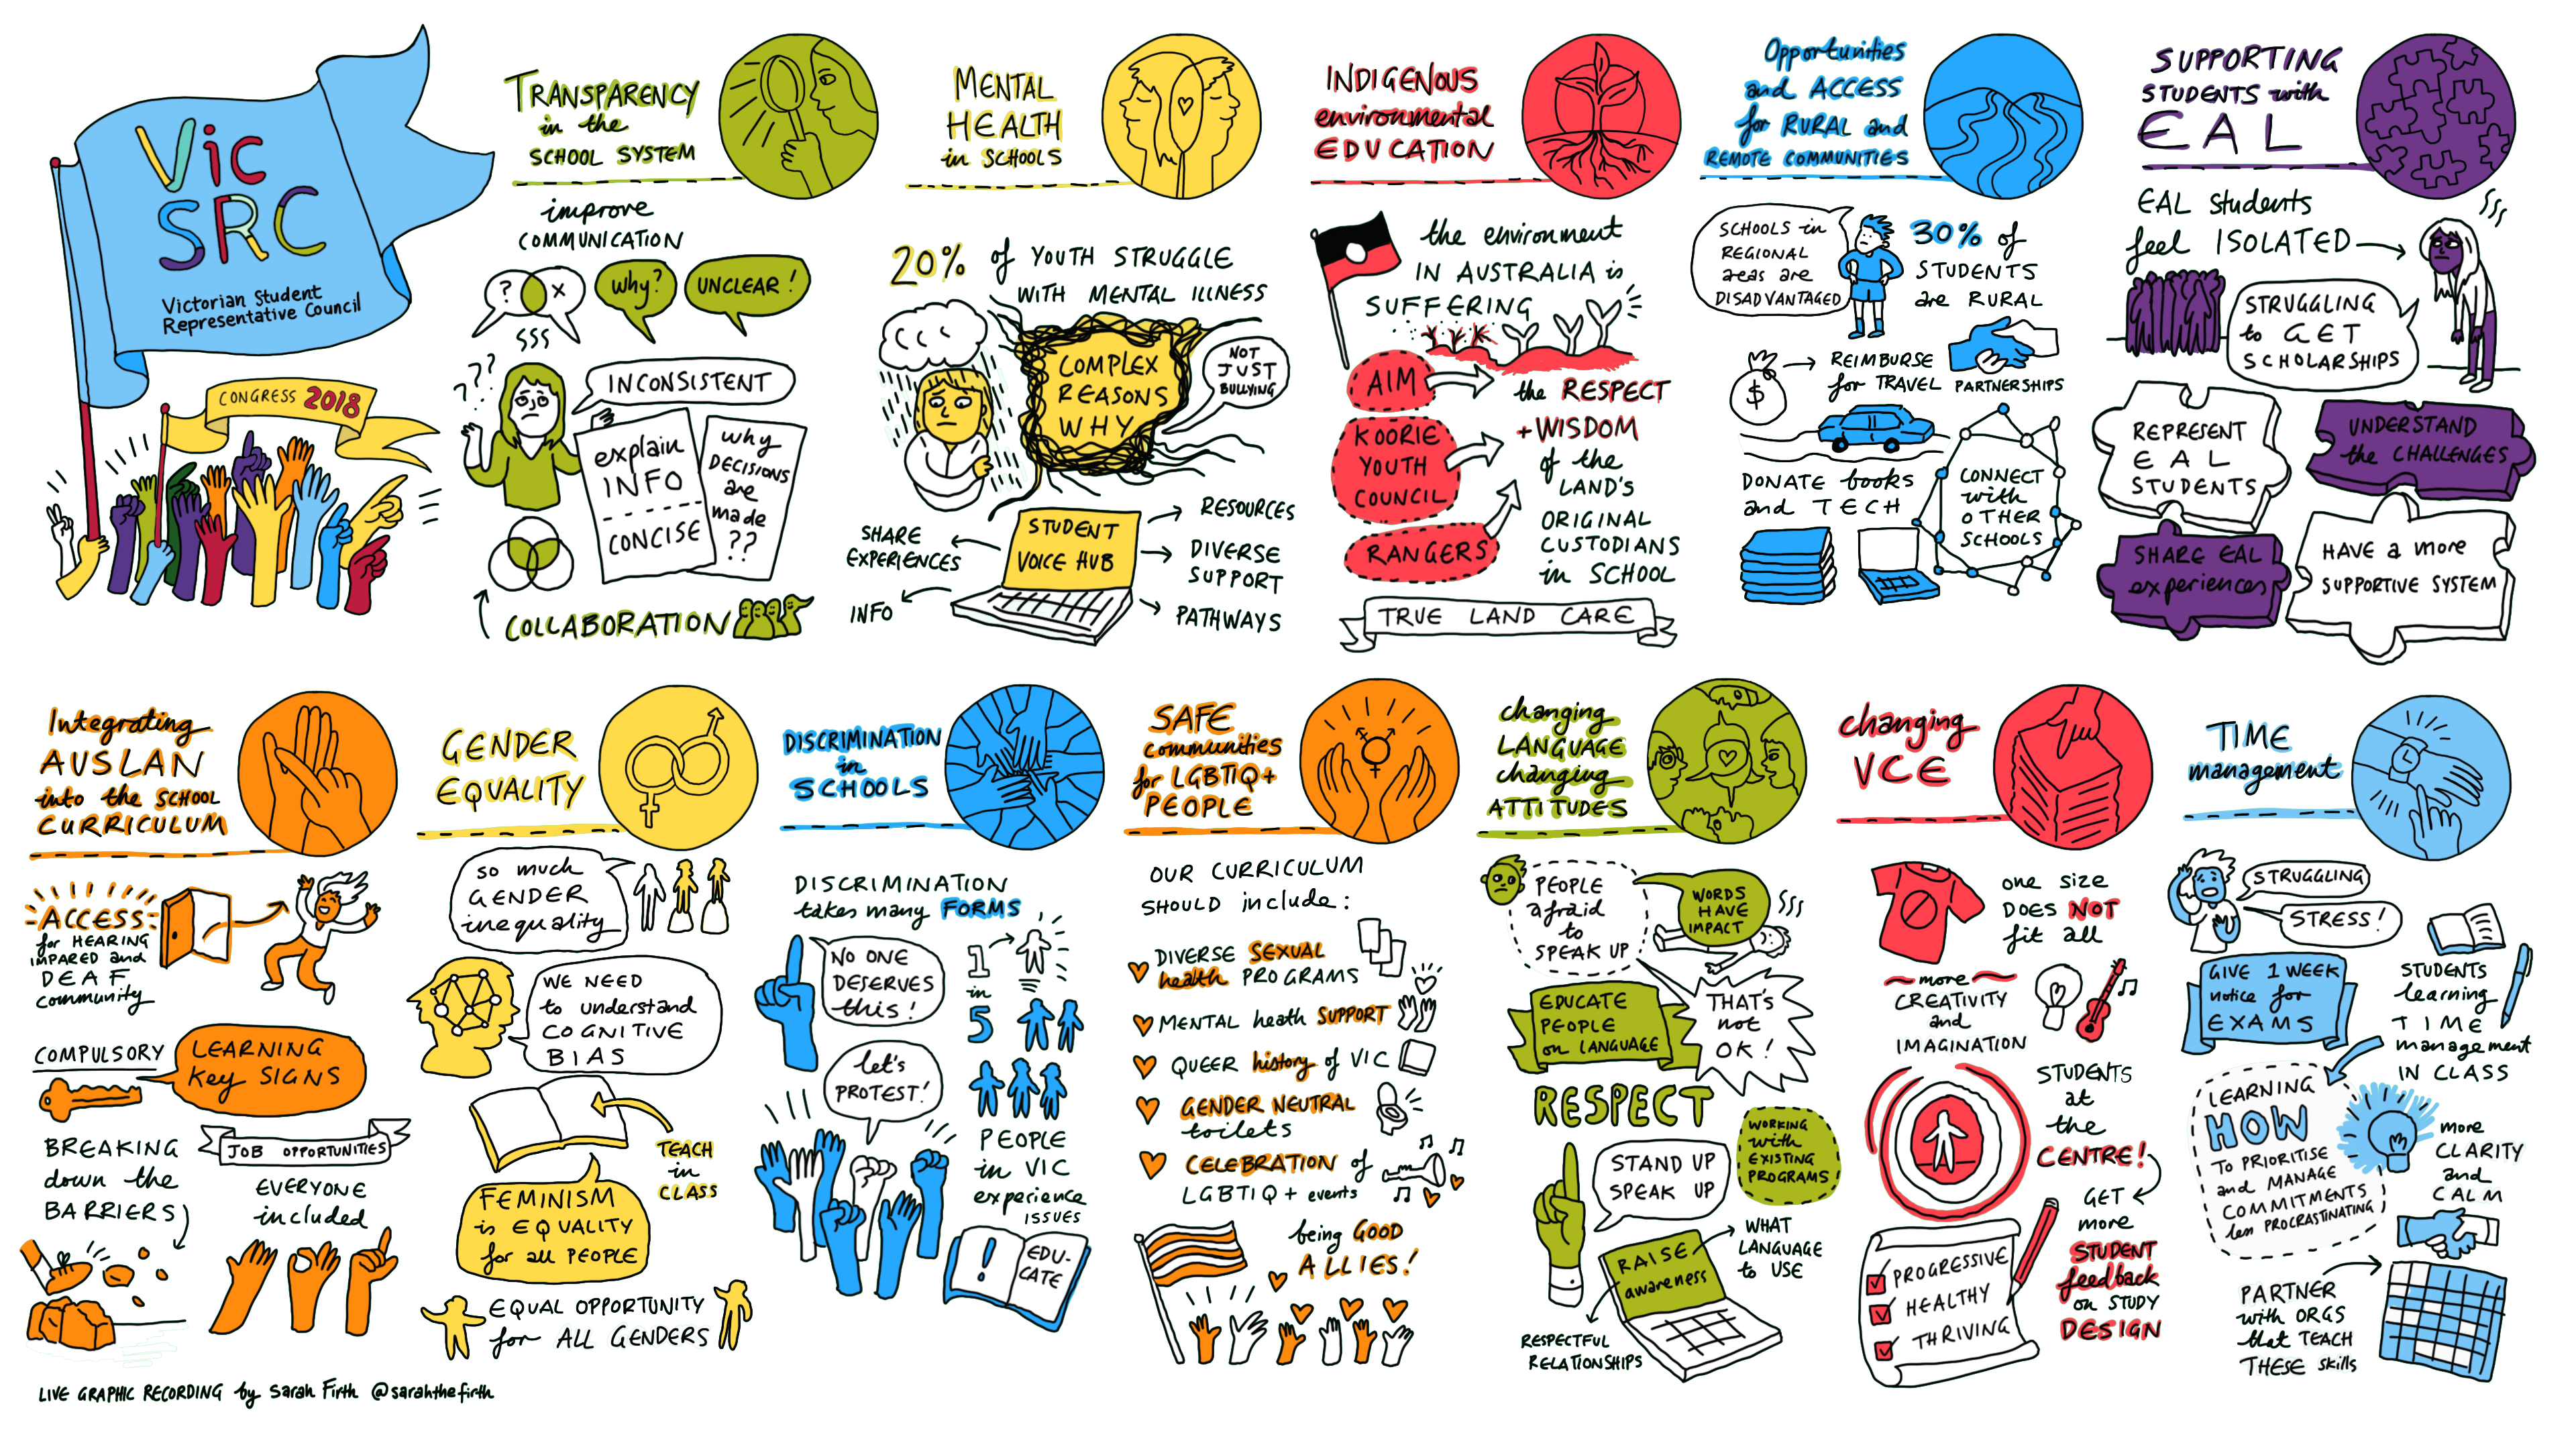 Vic
SRC
Victorian Student
Representative Council
CONGRESS 2018
TRANSPARENCY
in the
SCHOOL SYSTEM
improve
COMMUNICATION
?
x
why?
UNCLEAR!
???
INCONSISTENT
explain
INFO
CONCISE
why
DECISIONS
are
made
??
COLLABORATION
MENTAL
HEALTH
in SCHOOLS
20% of YOUTH STRUGGLE
WITH MENTAL ILLNESS
COMPLEX
REASONS
WHY
NOT
JUST
BULLYING
STUDENT
VOICE HUB
SHARE
EXPERIENCES
INFO
RESOURCES
DIVERSE
SUPPORT
PATHWAYS
INDIGENOUS
environmental
EDUCATION
the environment
IN AUSTRALIA is
SUFFERING
AIM
KOORIE
YOUTH
COUNCIL
RANGERS
the RESPECT
+ WISDOM
of the
LAND'S
ORIGINAL
CUSTODIANS
in SCHOOL
TRUE LAND CARE
Opportunities
and ACCESS
for RURAL and
REMOTE COMMUNITIES
SCHOOLS in
REGIONAL
areas are
DISADVANTAGED
30% of
STUDENTS
are RURAL
$
REIMBURSE
for TRAVEL
PARTNERSHIPS
DONATE books
and TECH
CONNECT
with
OTHER
SCHOOLS
SUPPORTING
STUDENTS with
EAL
EAL students
feel ISOLATED
STRUGGLING
to GET
SCHOLARSHIPS
REPRESENT
EAL
STUDENTS
UNDERSTAND
the CHALLENGES
SHARE EAL
experiences
HAVE a more
SUPPORTIVE SYSTEM
Integrating
AUSLAN
into the SCHOOL
CURRICULUM
ACCESS
for HEARING
IMPARED and
DEAF
community
COMPULSORY
LEARNING
key SIGNS
BREAKING
down the
BARRIERS
JOB OPPORTUNITIES
EVERYONE
included
GENDER
EQUALITY
so much
GENDER
inequality
WE NEED
to understand
COGNITIVE
BIAS
TEACH
in
CLASS
FEMINISM
is EQUALITY
for all PEOPLE
EQUAL OPPORTUNITY
for ALL GENDERS
DISCRIMINATION
in
SCHOOLS
DISCRIMINATION
takes many FORMS
NO ONE
DESERVES
this!
1
in
5
let's
PROTEST!
PEOPLE
in VIC
experience
ISSUES
!
EDU-
CATE
SAFE
communities
for LGBTIQ+
PEOPLE
OUR CURRICULUM
SHOULD include:
DIVERSE SEXUAL
health PROGRAMS
MENTAL heath SUPPORT
QUEER history of VIC
GENDER NEUTRAL
toilets
CELEBRATION of
LGBTIQ+ events
being GOOD
ALLIES!
changing
LANGUAGE
changing
ATTITUDES
PEOPLE
afraid
to
SPEAK UP
WORDS
HAVE
IMPACT
EDUCATE
PEOPLE
on LANGUAGE
THAT'S
not
OK!
RESPECT
STAND UP
SPEAK UP
WORKING
with
EXISTING
PROGRAMS
RAISE
awareness
WHAT
LANGUAGE
to USE
RESPECTFUL
RELATIONSHIPS
changing
VCE
one size
DOES NOT
fit all
more
CREATIVITY
and
IMAGINATION
STUDENTS
at
the
CENTRE!
GET
more
STUDENT
feedback
on STUDY
DESIGN
PROGRESSIVE
HEALTHY
THRIVING
TIME
management
STRUGGLING
STRESS!
GIVE 1 WEEK
notice for
EXAMS
STUDENTS
learning
TIME
management
IN CLASS
LEARNING
HOW
TO PRIORITISE
and MANAGE
COMMITMENTS
less PROCRASTINATING
more
CLARITY
and
CALM
PARTNER
with ORGS
that TEACH
THESE skills
LIVE GRAPHIC RECORDING by Sarah Firth @sarahthefirth